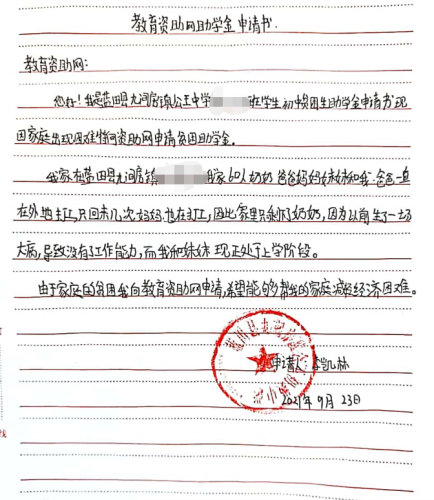 教育资助网助学金申请书.
教育资助网:
您好!我是蓝田县九间房镇公王中学 班学生初 困生助学金申请书现
因家庭出现困难特向资助网申请贫困助学金。
我家在蓝田县九间房镇 我家6口人奶奶爸爸妈妈妹妹和我.爸爸一直
在外地打工,只回来几次妈妈也在打工,因此家里只剩了奶奶,因为以前生了一场
大病,导致没有工作能力,而我和妹妹现正处于上学阶段。
由于家庭的贫困我向教育资助网申请,希望能够帮我的家庭减轻经济困难。
申请人:李凯林
2021年9月23日